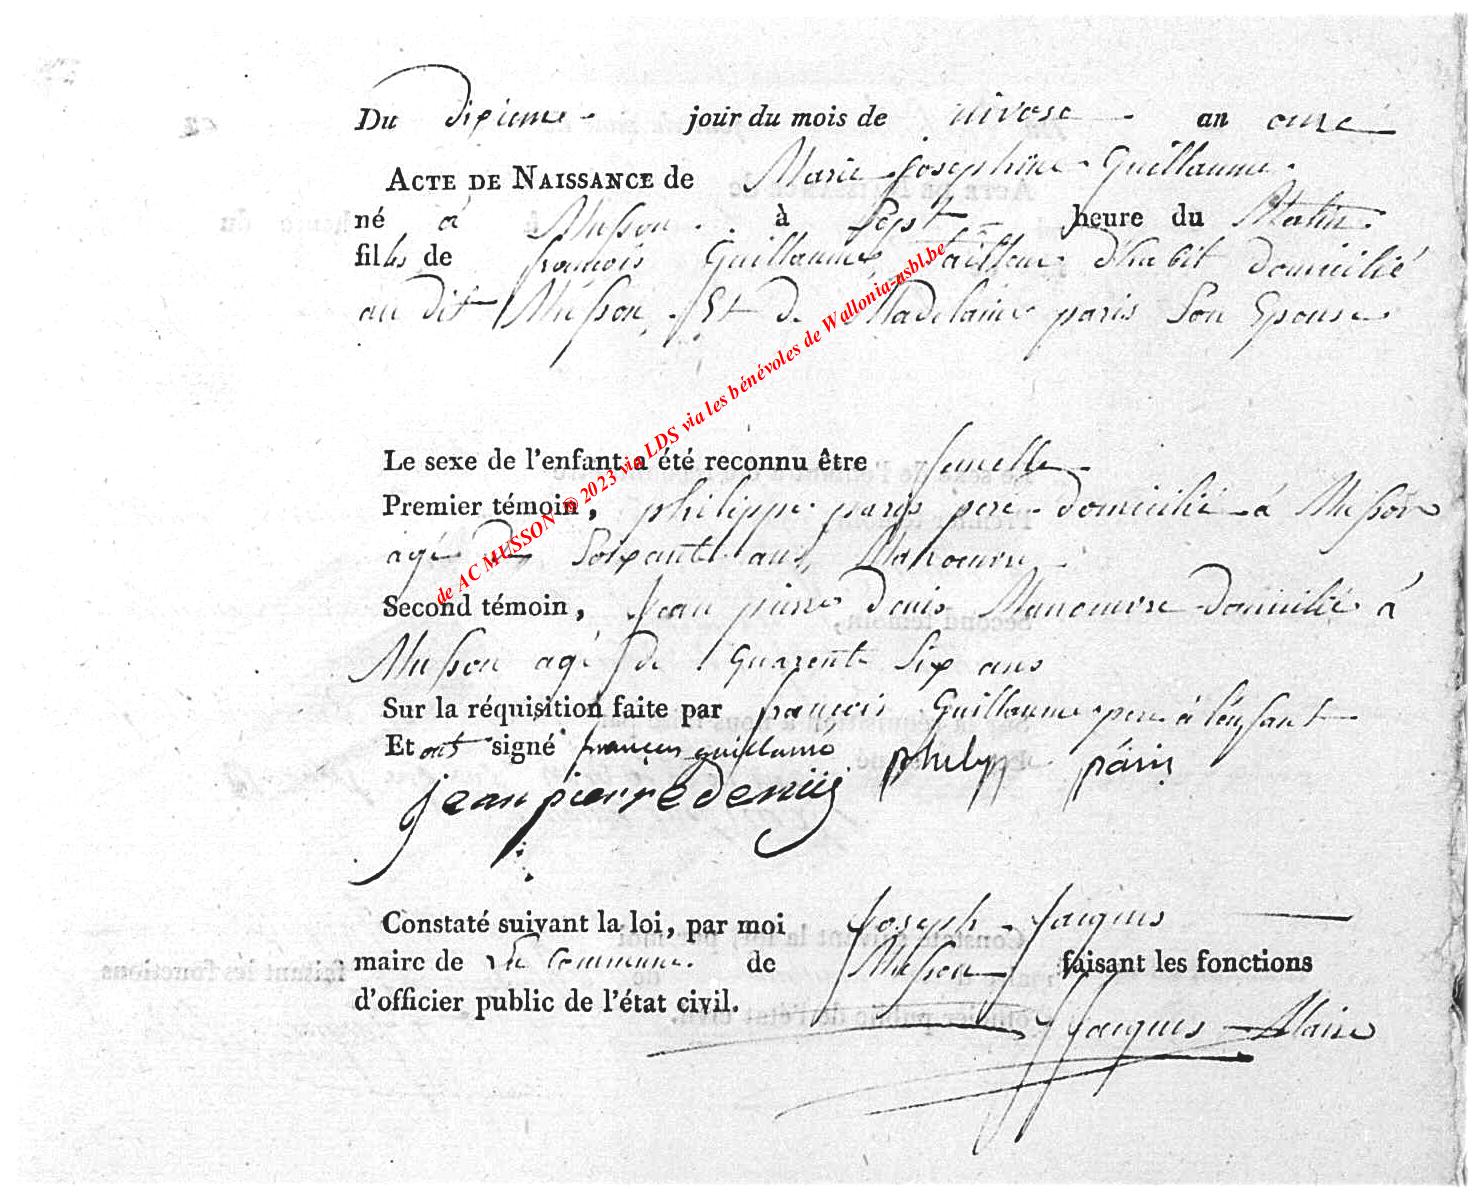 Du dixieme jour du mois de nivose an onze
ACTE DE NAISSANCE de Marie Josephine Guillaume
né à Musson à Sept heure du Matin
filles de françois Guillaume tailleur d'habit domicilié
au dit Musson Et de Madelaine paris Son Epouse
Le sexe de l'enfant a été reconnu être femelle
Premier témoin, philippe paris pere domicilié à Musson
agé de Soixante ans, Manoeuvre
Second témoin, Jean pierre Denis Manoeuvre domicilié à
Musson agé de Quarente Six ans
Sur la réquisition faite par françois Guillaume pere à l'enfant
Et ont signé françois guillaume philipp páris
jean pierre deniis
Constaté suivant la loi, par moi Joseph Jacques
maire de la Commune de Musson faisant les fonctions
d'officier public de l'état civil.
JJacques Maire
de AC MUSSON © 2023 via LDS via les bénévoles de Wallonia-asbl.be